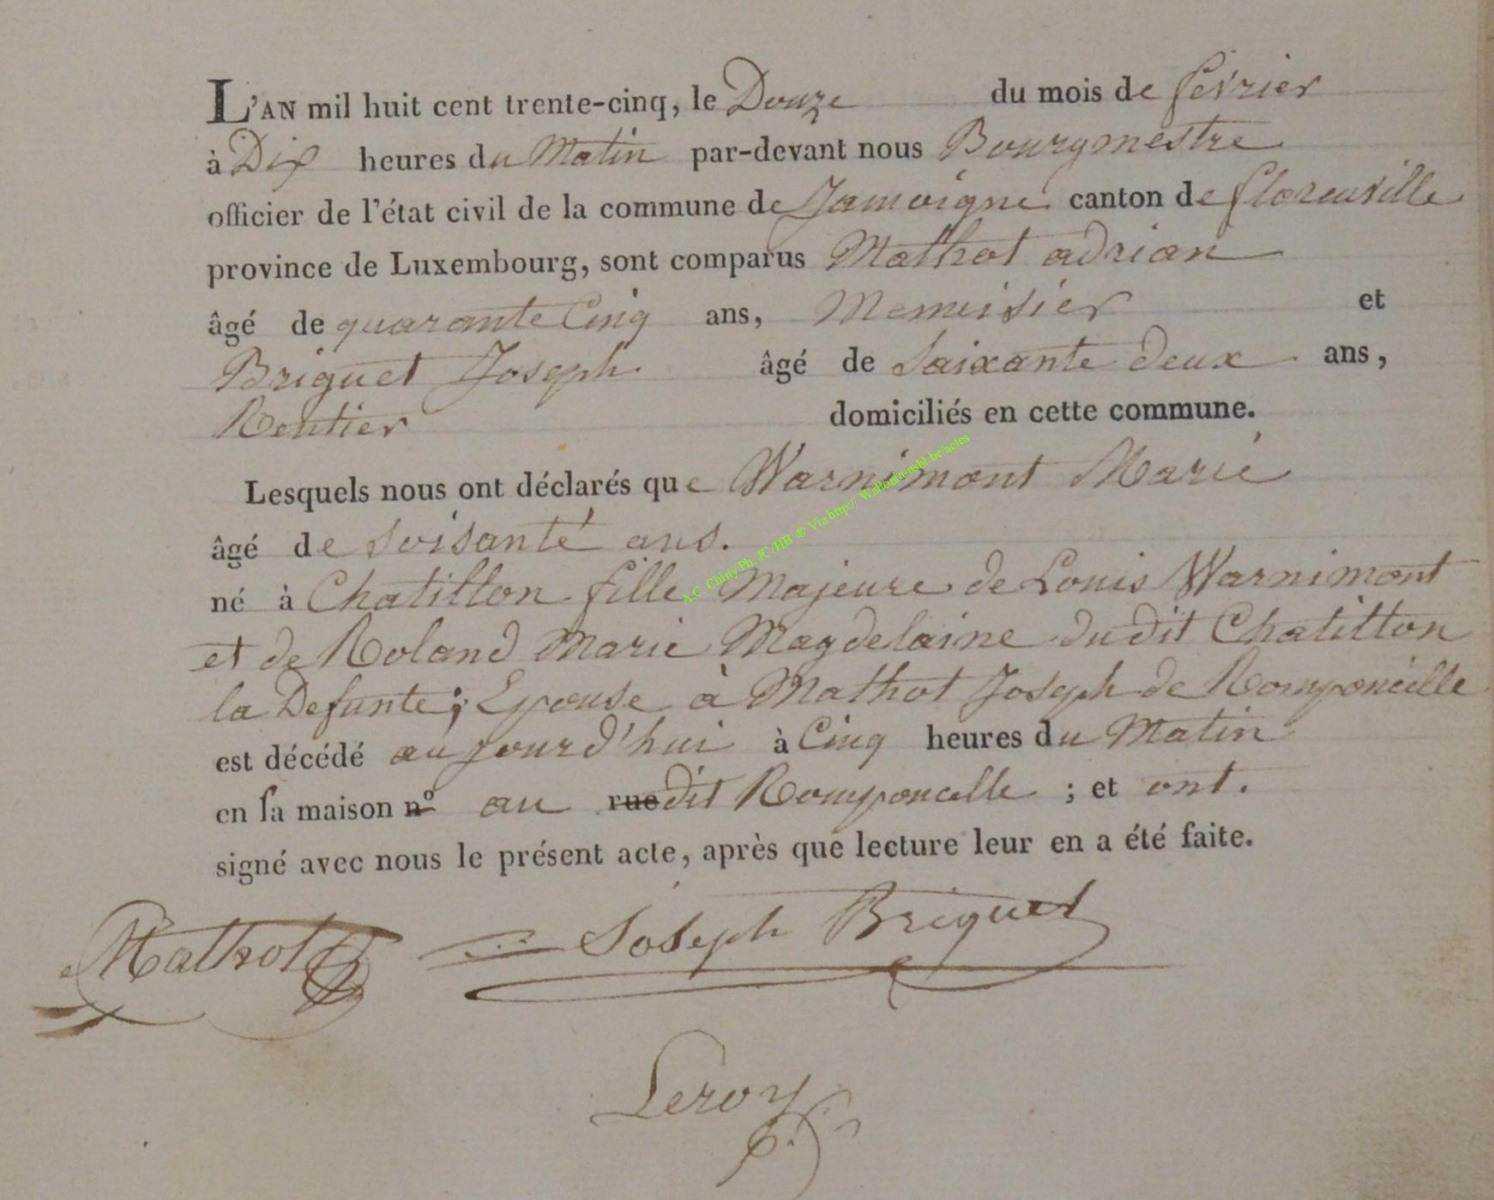 L'AN mil huit cent trente-cinq, le Douze du mois de février
à Dix heures du Matin par-devant nous Bourgmestre
officier de l'état civil de la commune de Jamoigne canton de florenville
province de Luxembourg, sont comparus Mathot adrian
âgé de quarante Cinq ans, Menuisier et
Briquet Joseph âgé de Soixante deux ans,
Rentier domiciliés en cette commune.
Lesquels nous ont déclarés que Warnimont Marie
âgé de soisante ans.
né à Chatillon fille Majeure de Louis Warnimont
et de Roland Marie Magdelaine du dit Chatillon
la Defunte; Epouse à Mathot Joseph de Romponcelle
est décédé aujourd'hui à Cinq heures du Matin
en sa maison nº au rue dit Romponcelle ; et ont.
signé avec nous le présent acte, après que lecture leur en a été faite.
Mathot Joseph Briquet
Leroy